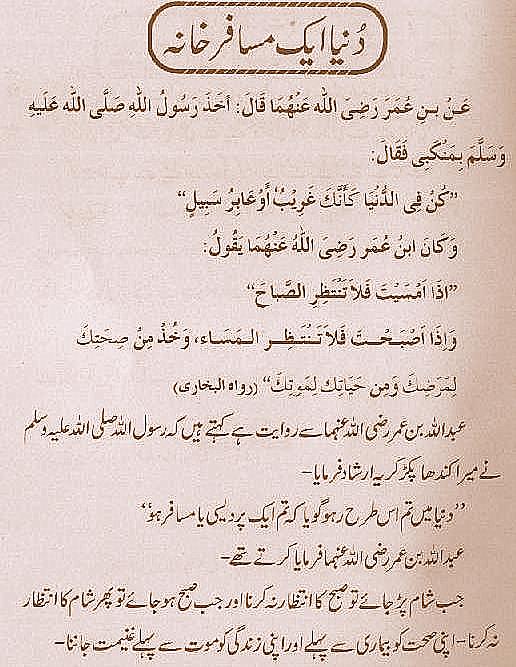 دُنیا ایک مسافر خانہ
عَنْ بنِ عُمَرَ رَضِیَ الله عَنْهُمَا قَالَ: اَخَذَ رَسُولُ اللهِ صَلَّی الله عَلَیْهِ
وَسَلَّمَ بِمَنْکَبِی فَقَالَ:
”کُنْ فِی الدُّنْیَا کَأنَّكَ غَرِیْبٌ أوْعَابِرُ سَبِیلٍ“
وَکَانَ ابنُ عُمَر رَضِیَ اللهُ عَنْهُمَا یَقُولُ:
”اذَا اَمْسَیْتَ فَلاَ تَنْتَظِرِ الصَّباحَ“
وَاِذَا اَصْبَحْتَ فَلاَ تَنْتَظِرِ المَسَاء، وَخُذْ مِنْ صِحَتِكَ
لِمَرَضِكَ وَمِن حَیَاتِكَ لِمَوتِكَ“ (رواہ البخاری)
عبداللہ بن عمر رضی اللہ عنہما سے روایت ہے کہتے ہیں کہ رسول اللہ صلی اللہ علیہ وسلم
نے میرا کندھا پکڑ کر یہ ارشاد فرمایا۔
”دنیا میں تم اس طرح رہو گویا کہ تم ایک پردیسی یا مسافر ہو“
عبداللہ بن عمر رضی اللہ عنہما فرمایا کرتے تھے۔
جب شام پڑ جائے تو صبح کا انتظار نہ کرنا اور جب صبح ہو جائے تو پھر شام کا انتظار
نہ کرنا۔ اپنی صحت کو بیماری سے پہلے اور اپنی زندگی کو موت سے پہلے غنیمت جاننا۔